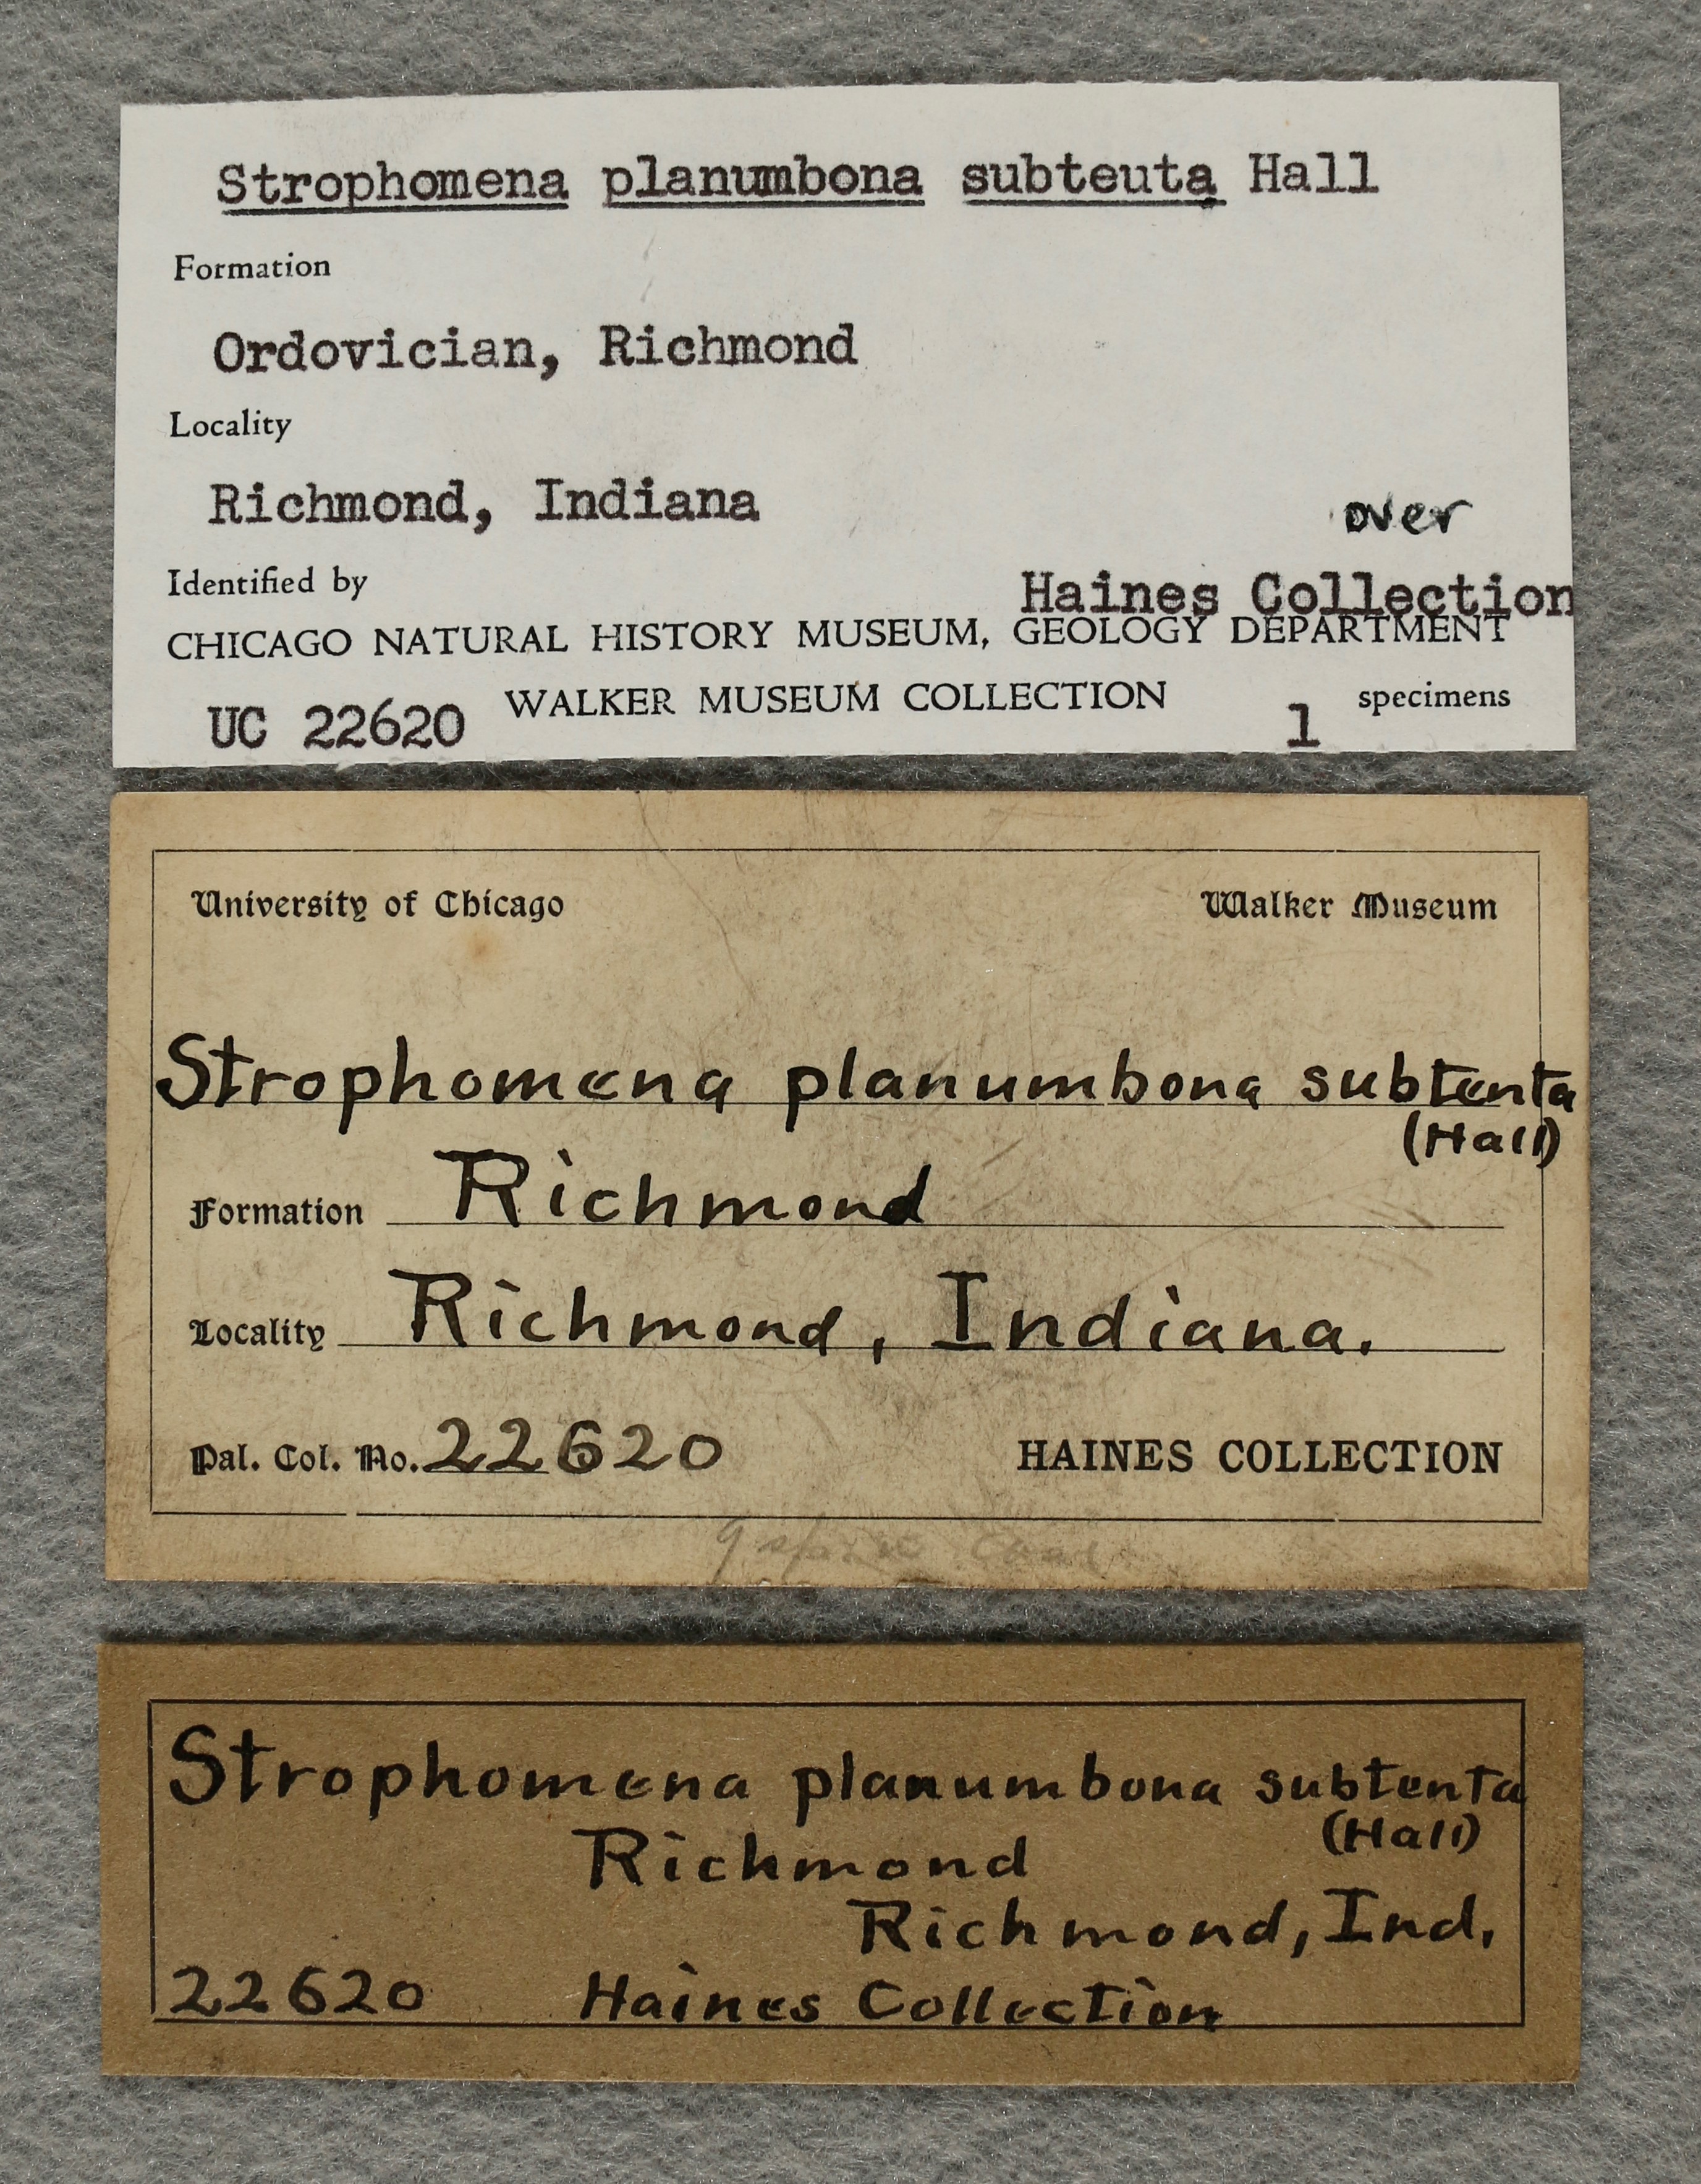 Strophomena planumbona subteuta Hall
Formation
Ordovician, Richmond
Locality
Richmond, Indiana
over
Identified by
Haines Collection
CHICAGO NATURAL HISTORY MUSEUM, GEOLOGY DEPARTMENT
UC 22620 WALKER MUSEUM COLLECTION 1 specimens
University of Chicago Walker Museum
Strophomena planumbona subtenta
(Hall)
Formation Richmond
Locality Richmond, Indiana.
Pal. Col. No. 22620 HAINES COLLECTION
Strophomena planumbona subtenta
(Hall)
Richmond
Richmond, Ind.
22620 Haines Collection